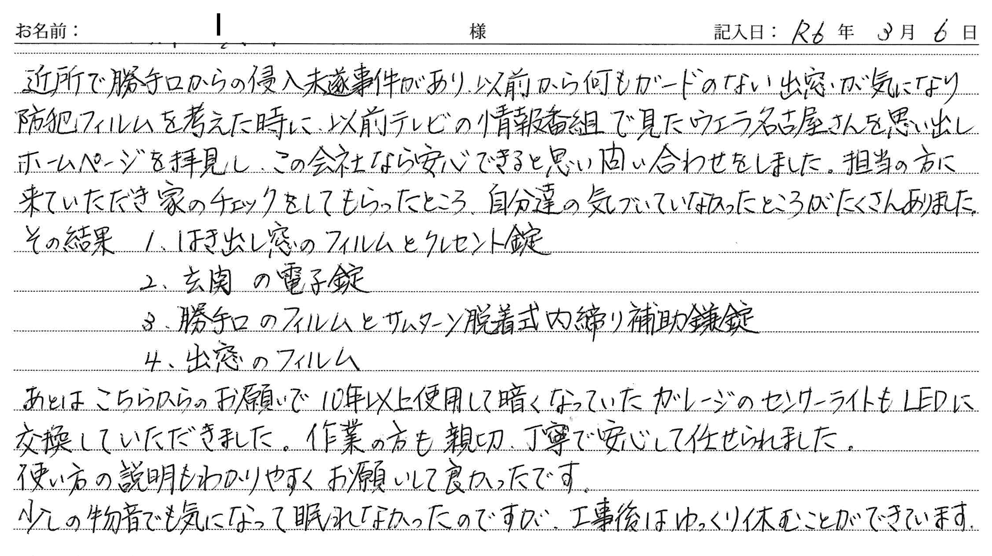 お名前： 様 記入日：R6年 3月 6日
近所で勝手口からの侵入未遂事件があり、以前から何もガードのない出窓が気になり
防犯フィルムを考えた時に、以前テレビの情報番組で見たウェラ名古屋さんを思い出し
ホームページを拝見し、この会社なら安心できると思い問い合わせをしました。担当の方に
来ていただき家のチェックをしてもらったところ、自分達の気づいていなかったところがたくさんありました。
その結果 1、はき出し窓のフィルムとクレセント錠
2、玄関の電子錠
3、勝手口のフィルムとサムターン脱着式内締り補助鎌錠
4、出窓のフィルム
あとはこちらからのお願いで10年以上使用して暗くなっていたガレージのセンサーライトもLEDに
交換していただきました。作業の方も親切、丁寧で安心して任せられました。
使い方の説明もわかりやすくお願いして良かったです。
少しの物音でも気になって眠れなかったのですが、工事後はゆっくり休むことができています。